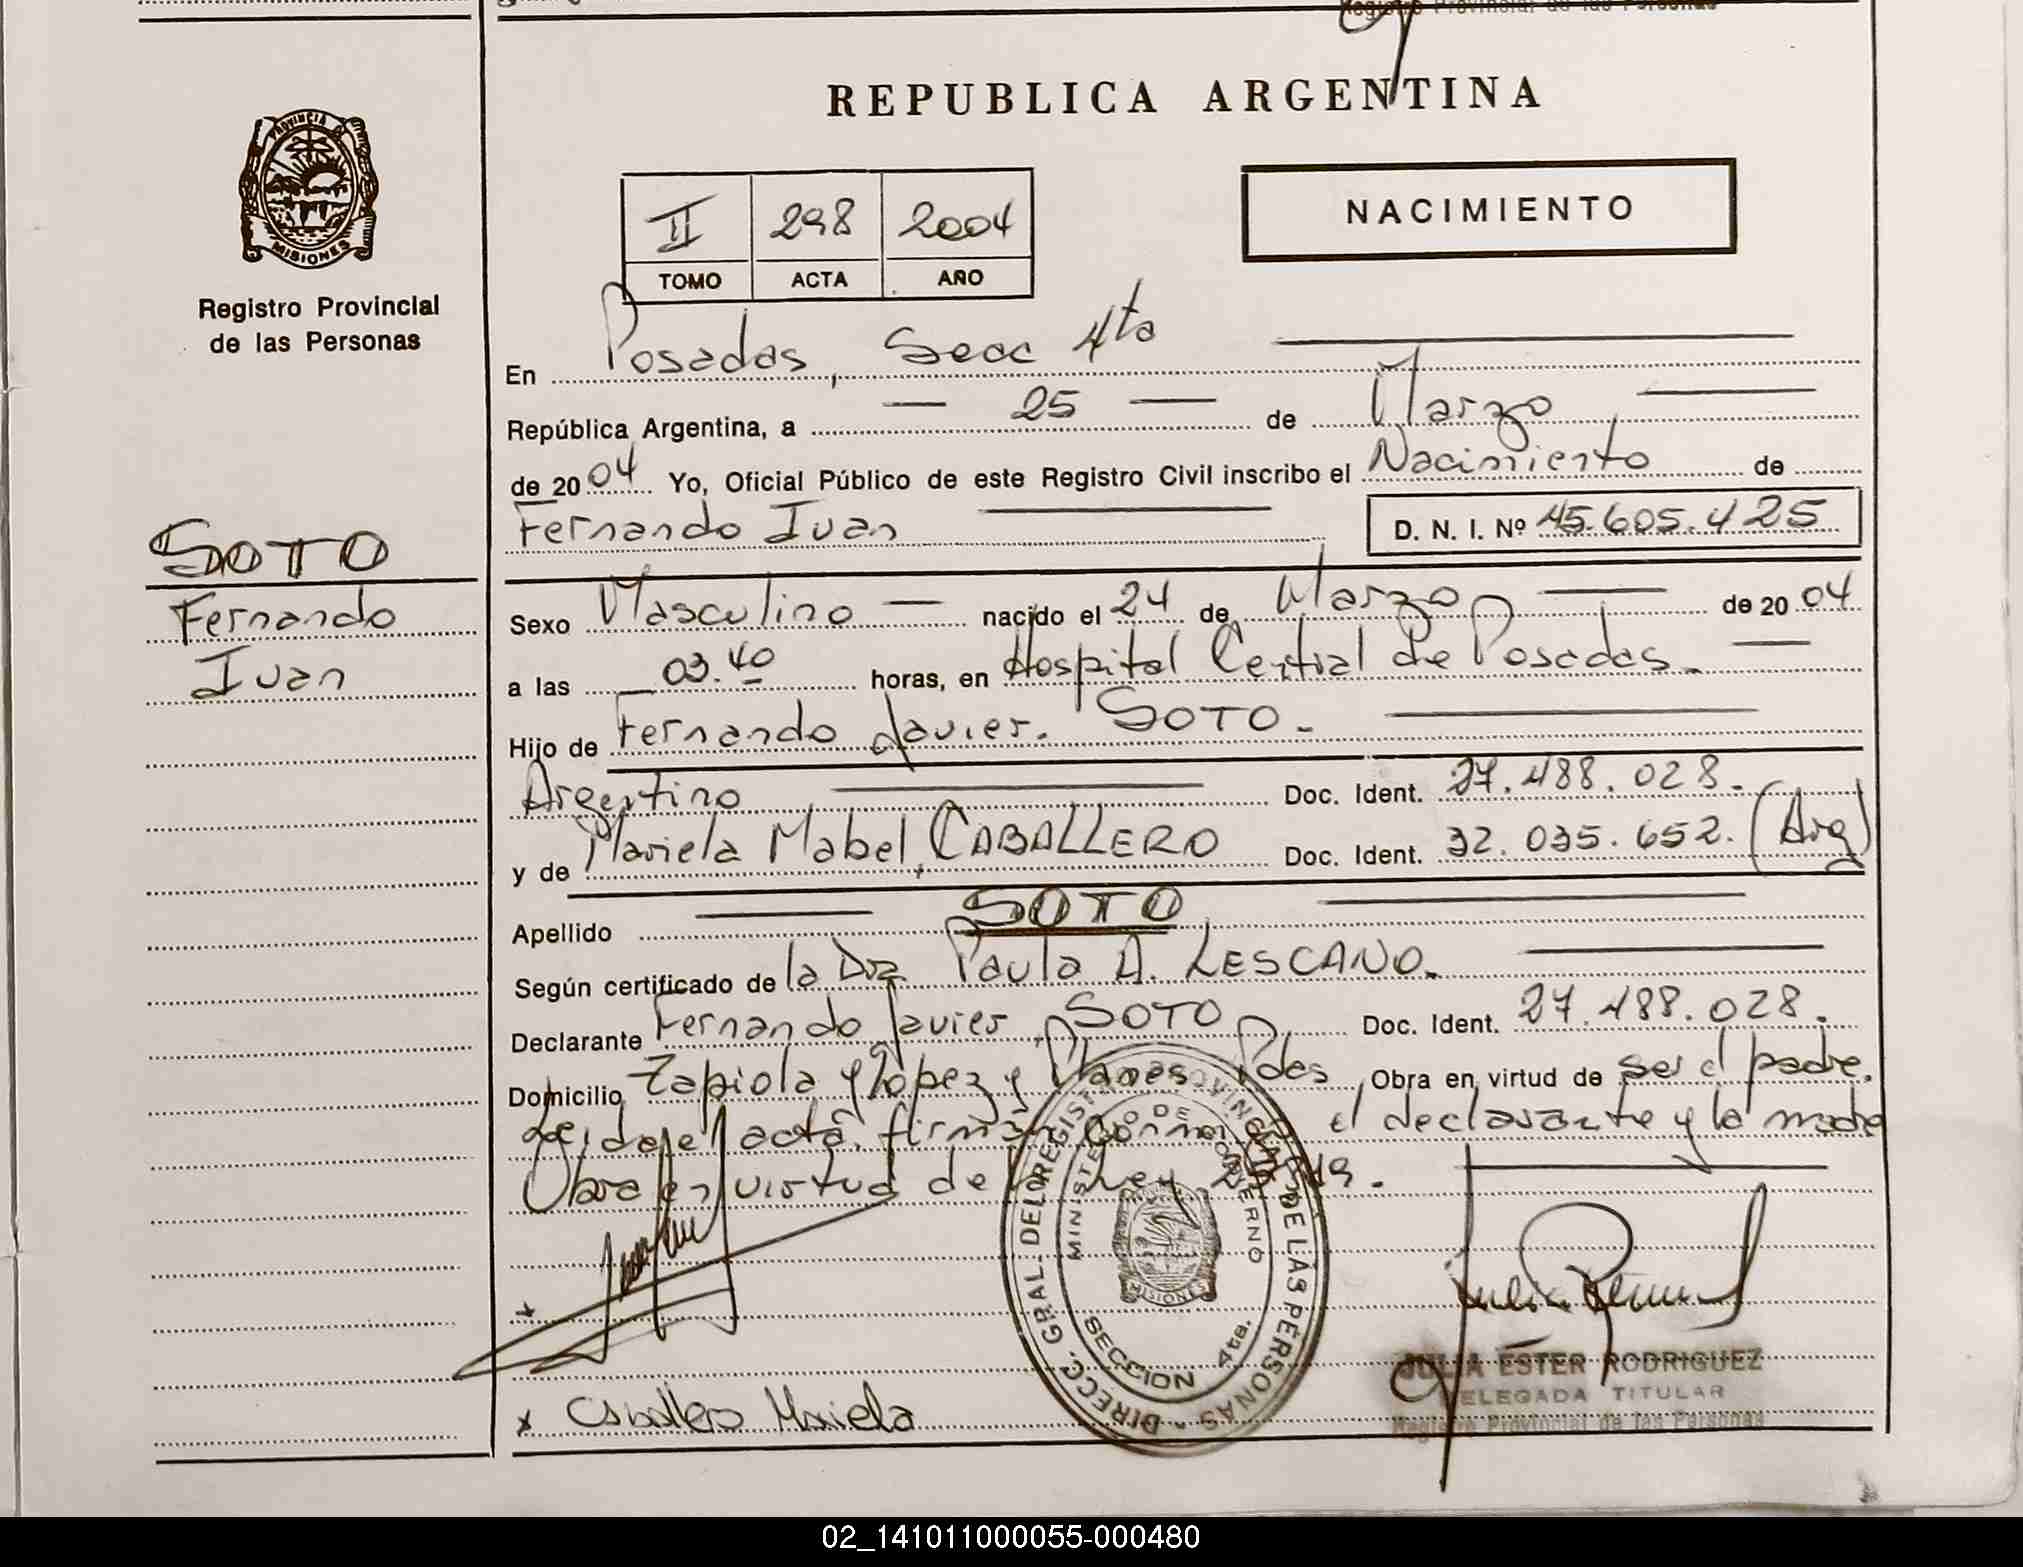 REPUBLICA ARGENTINA
PROVINCIA DE
MISIONES
Registro Provincial
de las Personas
II 298 2004
TOMO ACTA AÑO
NACIMIENTO
En Posadas, Secc 4ta
República Argentina, a 25 de Marzo
de 2004 Yo, Oficial Público de este Registro Civil inscribo el Nacimiento de
Fernando Ivan D. N. I. Nº 45.605.425
SOTO
Fernando
Ivan
Sexo Masculino nacido el 24 de Marzo de 2004
a las 03.40 horas, en Hospital Central de Posadas.
Hijo de Fernando Javier. SOTO.
Argentino Doc. Ident. 27.488.028.
y de Mariela Mabel, CABALLERO Doc. Ident. 32.035.652. (Arg)
Apellido SOTO
Según certificado de la Dra Paula A. LESCANO.
Declarante Fernando Javier, SOTO Doc. Ident. 27.488.028.
Domicilio Zapiola y López y Planes Pdas Obra en virtud de ser el padre.
Leída el acta, firman conmigo el declarante y la madre
Obra en virtud de la Ley
DIRECC. GRAL. DEL REGISTRO PROVINCIAL DE LAS PERSONAS
MINISTERIO DE GOBIERNO
MISIONES
SECCION 4ta.
JULIA ESTER RODRIGUEZ
DELEGADA TITULAR
Registro Provincial de las Personas
x Caballero Mariela
02_141011000055-000480